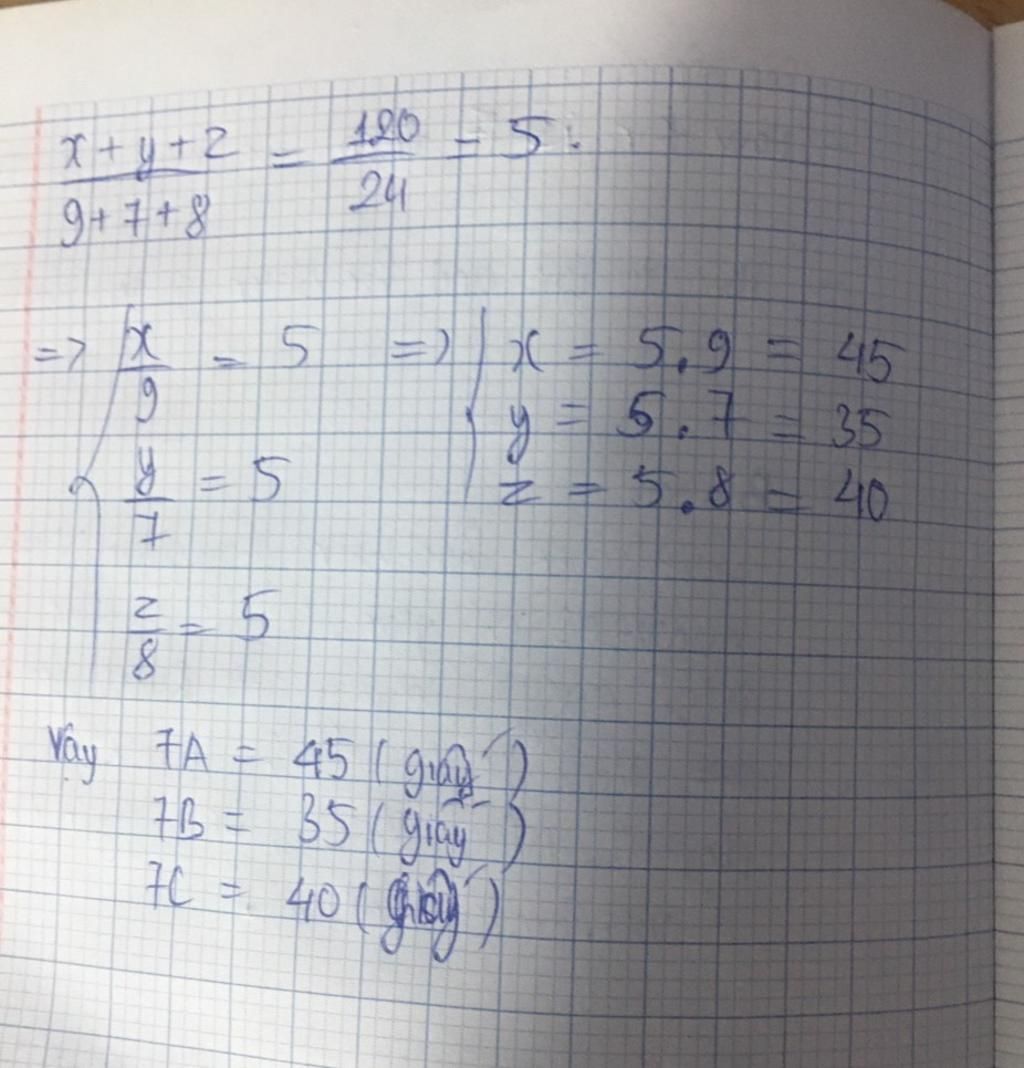 x + y + z / 9 + 7 + 8 = 120 / 24 = 5.
=> { x/9 = 5 => { x = 5.9 = 45
y = 5.7 = 35
y/7 = 5
z = 5.8 = 40
z/8 = 5
Vậy 7A = 45 (giấy)
7B = 35 (giấy)
7C = 40 (giấy)